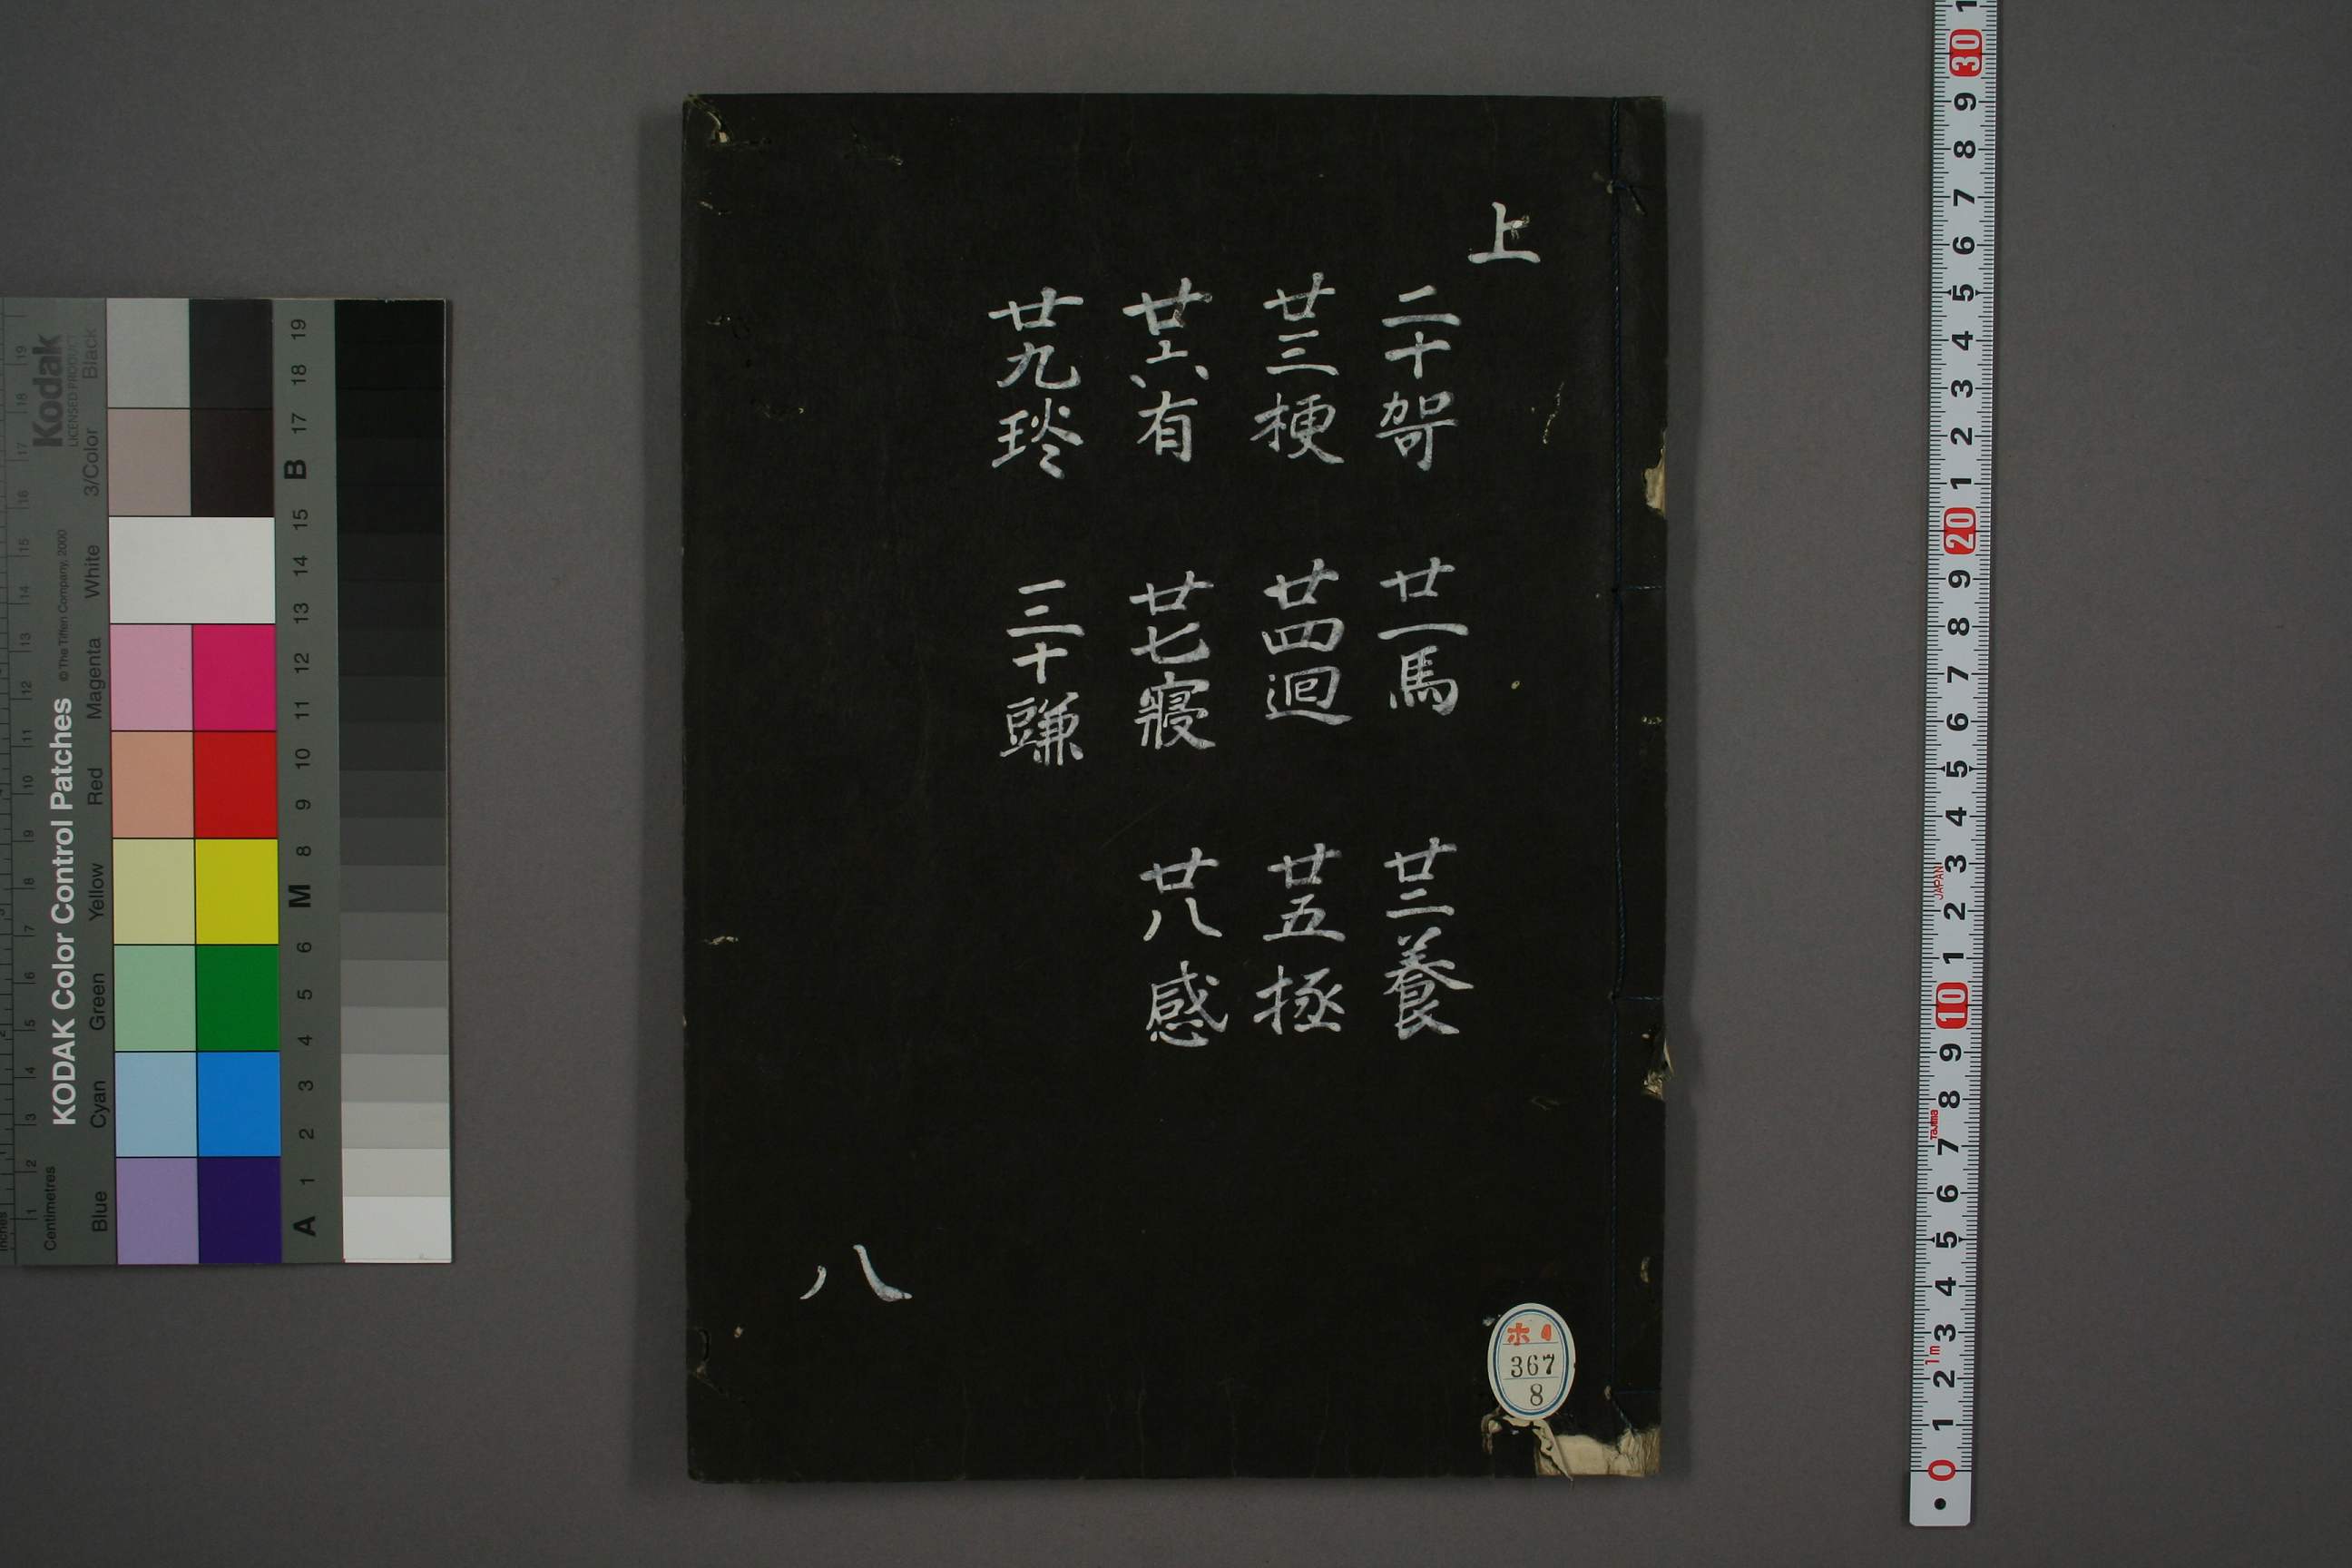 上
二十哿 廿一馬 廿二養
廿三梗 廿四迴 廿五拯
廿六有 廿七寢 廿八感
廿九琰 三十豏
八
ホ 1
367
8
KODAK Color Control Patches
© The Tiffen Company, 2000
Kodak
LICENSED PRODUCT
Inches
Centimetres
Blue Cyan Green Yellow Red Magenta White 3/Color Black
A 1 2 3 4 5 6 M 8 9 10 11 12 13 14 15 B 17 18 19
0 1 2 3 4 5 6 7 8 9 10 1 2 3 4 5 6 7 8 9 20 1 2 3 4 5 6 7 8 9 30 1
1m
Tajima
JAPAN